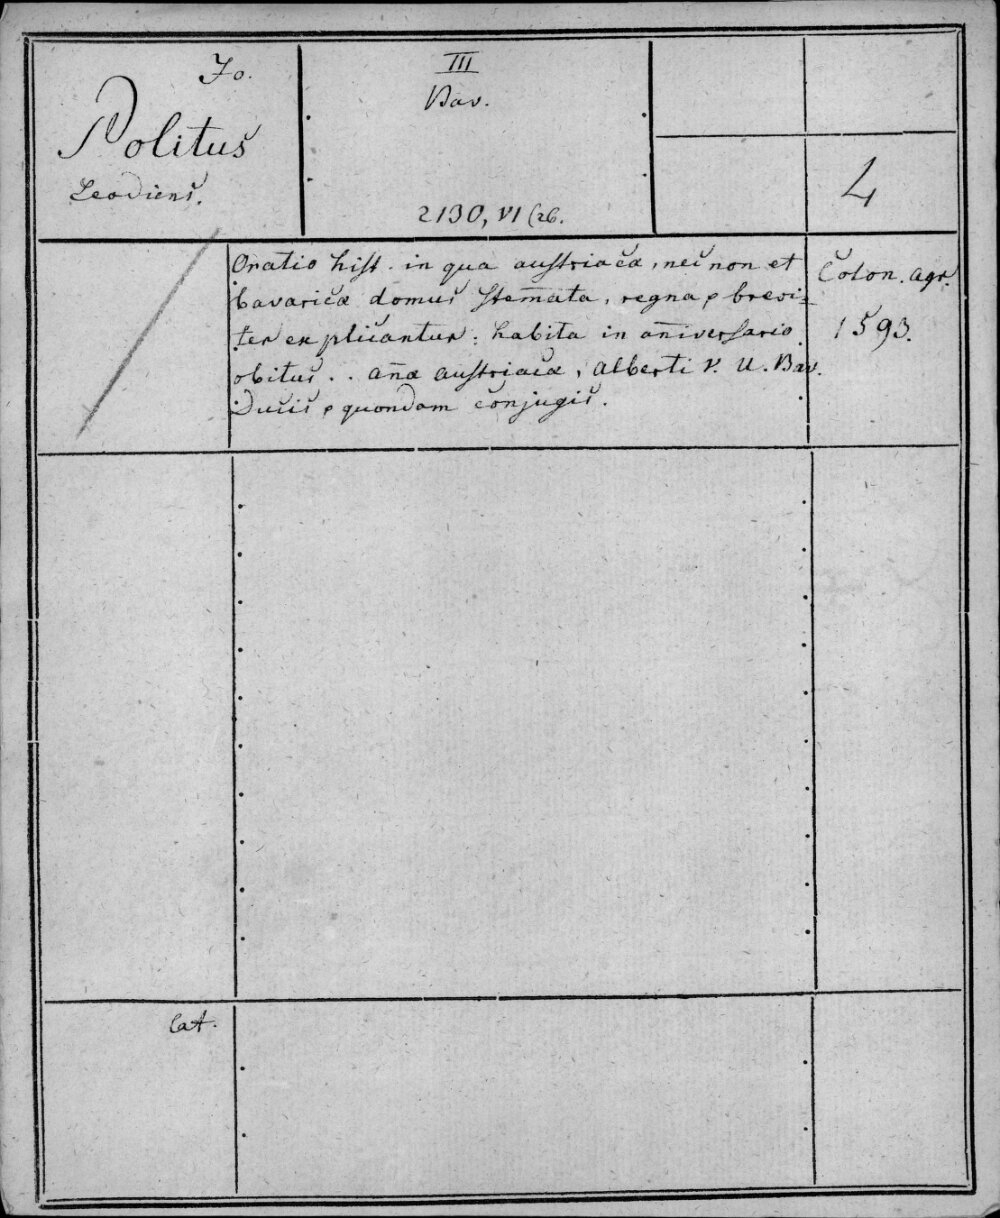 Jo.
Politus
Leodiens.
III
Bav.
2130, VI (26.
4
Oratio hist. in qua austriacæ, nec non et
bavaricæ domus stem̄ata, regna, brevi-
ter explicantur: habita in an̄iversario
obitus .. an̄æ austriacæ, Alberti V. U. Bav.
Ducis, quondam conjugis.
Colon. Agr.
1593.
Lat.